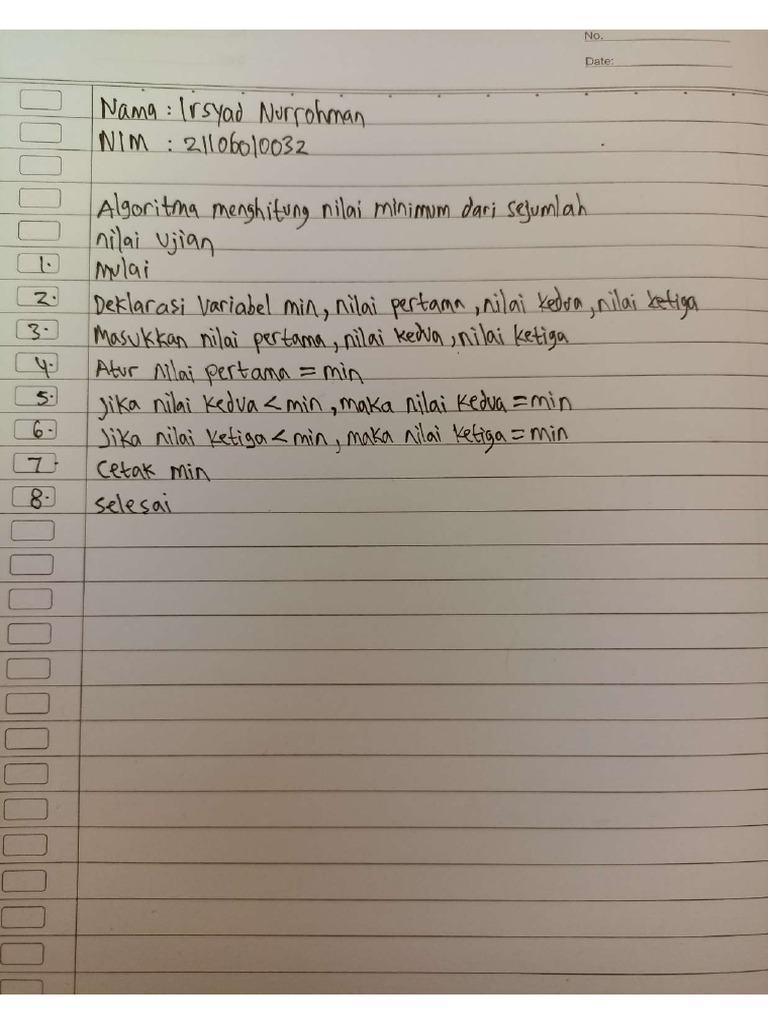 No.
Date:
Nama : Irsyad Nurrohman
NIM : 21106010032
Algoritma menghitung nilai minimum dari sejumlah
nilai ujian
1. Mulai
2. Deklarasi variabel min, nilai pertama, nilai kedua, nilai ketiga
3. Masukkan nilai pertama, nilai kedua, nilai ketiga
4. Atur nilai pertama = min
5. Jika nilai kedua < min, maka nilai kedua = min
6. Jika nilai ketiga < min, maka nilai ketiga = min
7. Cetak min
8. Selesai